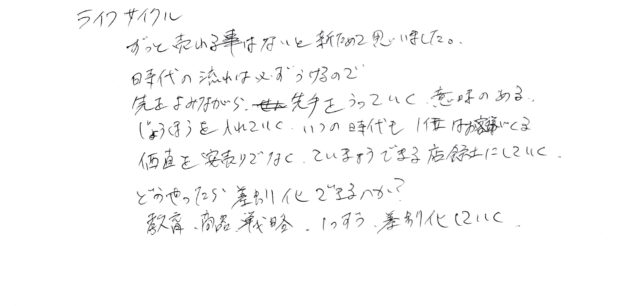 ライフサイクル
ずっと売れる事はないと新ためて思いました。
時代の流れは必ずうけるので
先をよみながら、先手をうっていく、意味のある、
じょうほうを入れていく、いつの時代も 1価はお客様がくる
価直を安売りでなく、ていきょうできる店舗にしていく、
どうやったら差別化できるべか?
教育、商品、戦略、1つずつ、差別化していく、